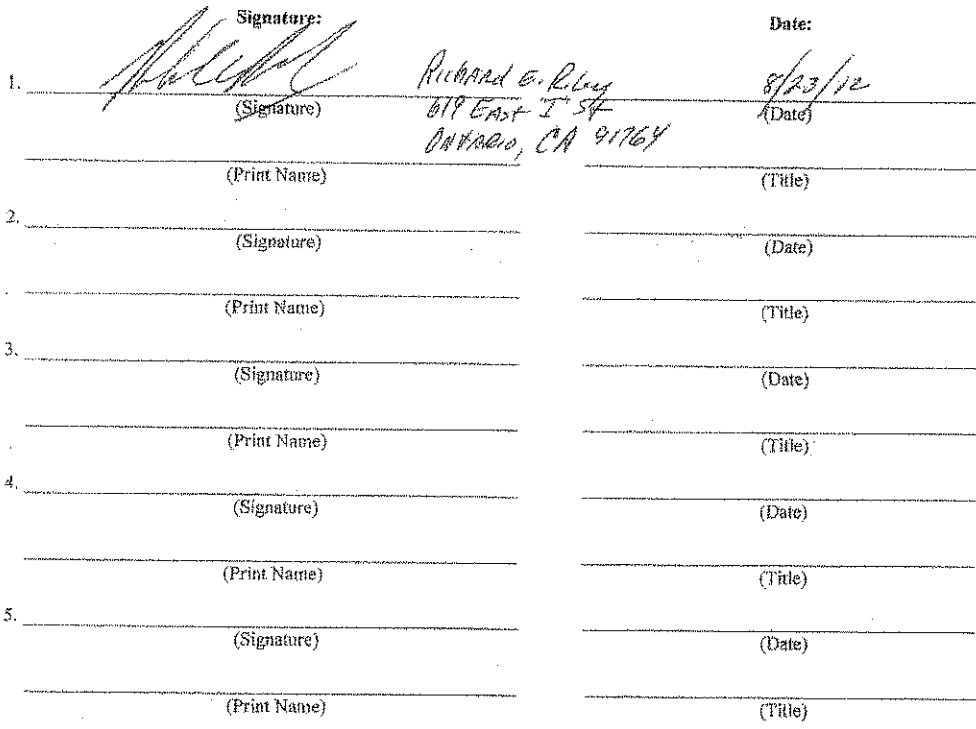 Signature: Date:
1. Richard E. Riley 8/23/12
(Signature) 619 East I St (Date)
Ontario, CA 91764
(Print Name) (Title)
2.
(Signature) (Date)
(Print Name) (Title)
3.
(Signature) (Date)
(Print Name) (Title)
4.
(Signature) (Date)
(Print Name) (Title)
5.
(Signature) (Date)
(Print Name) (Title)